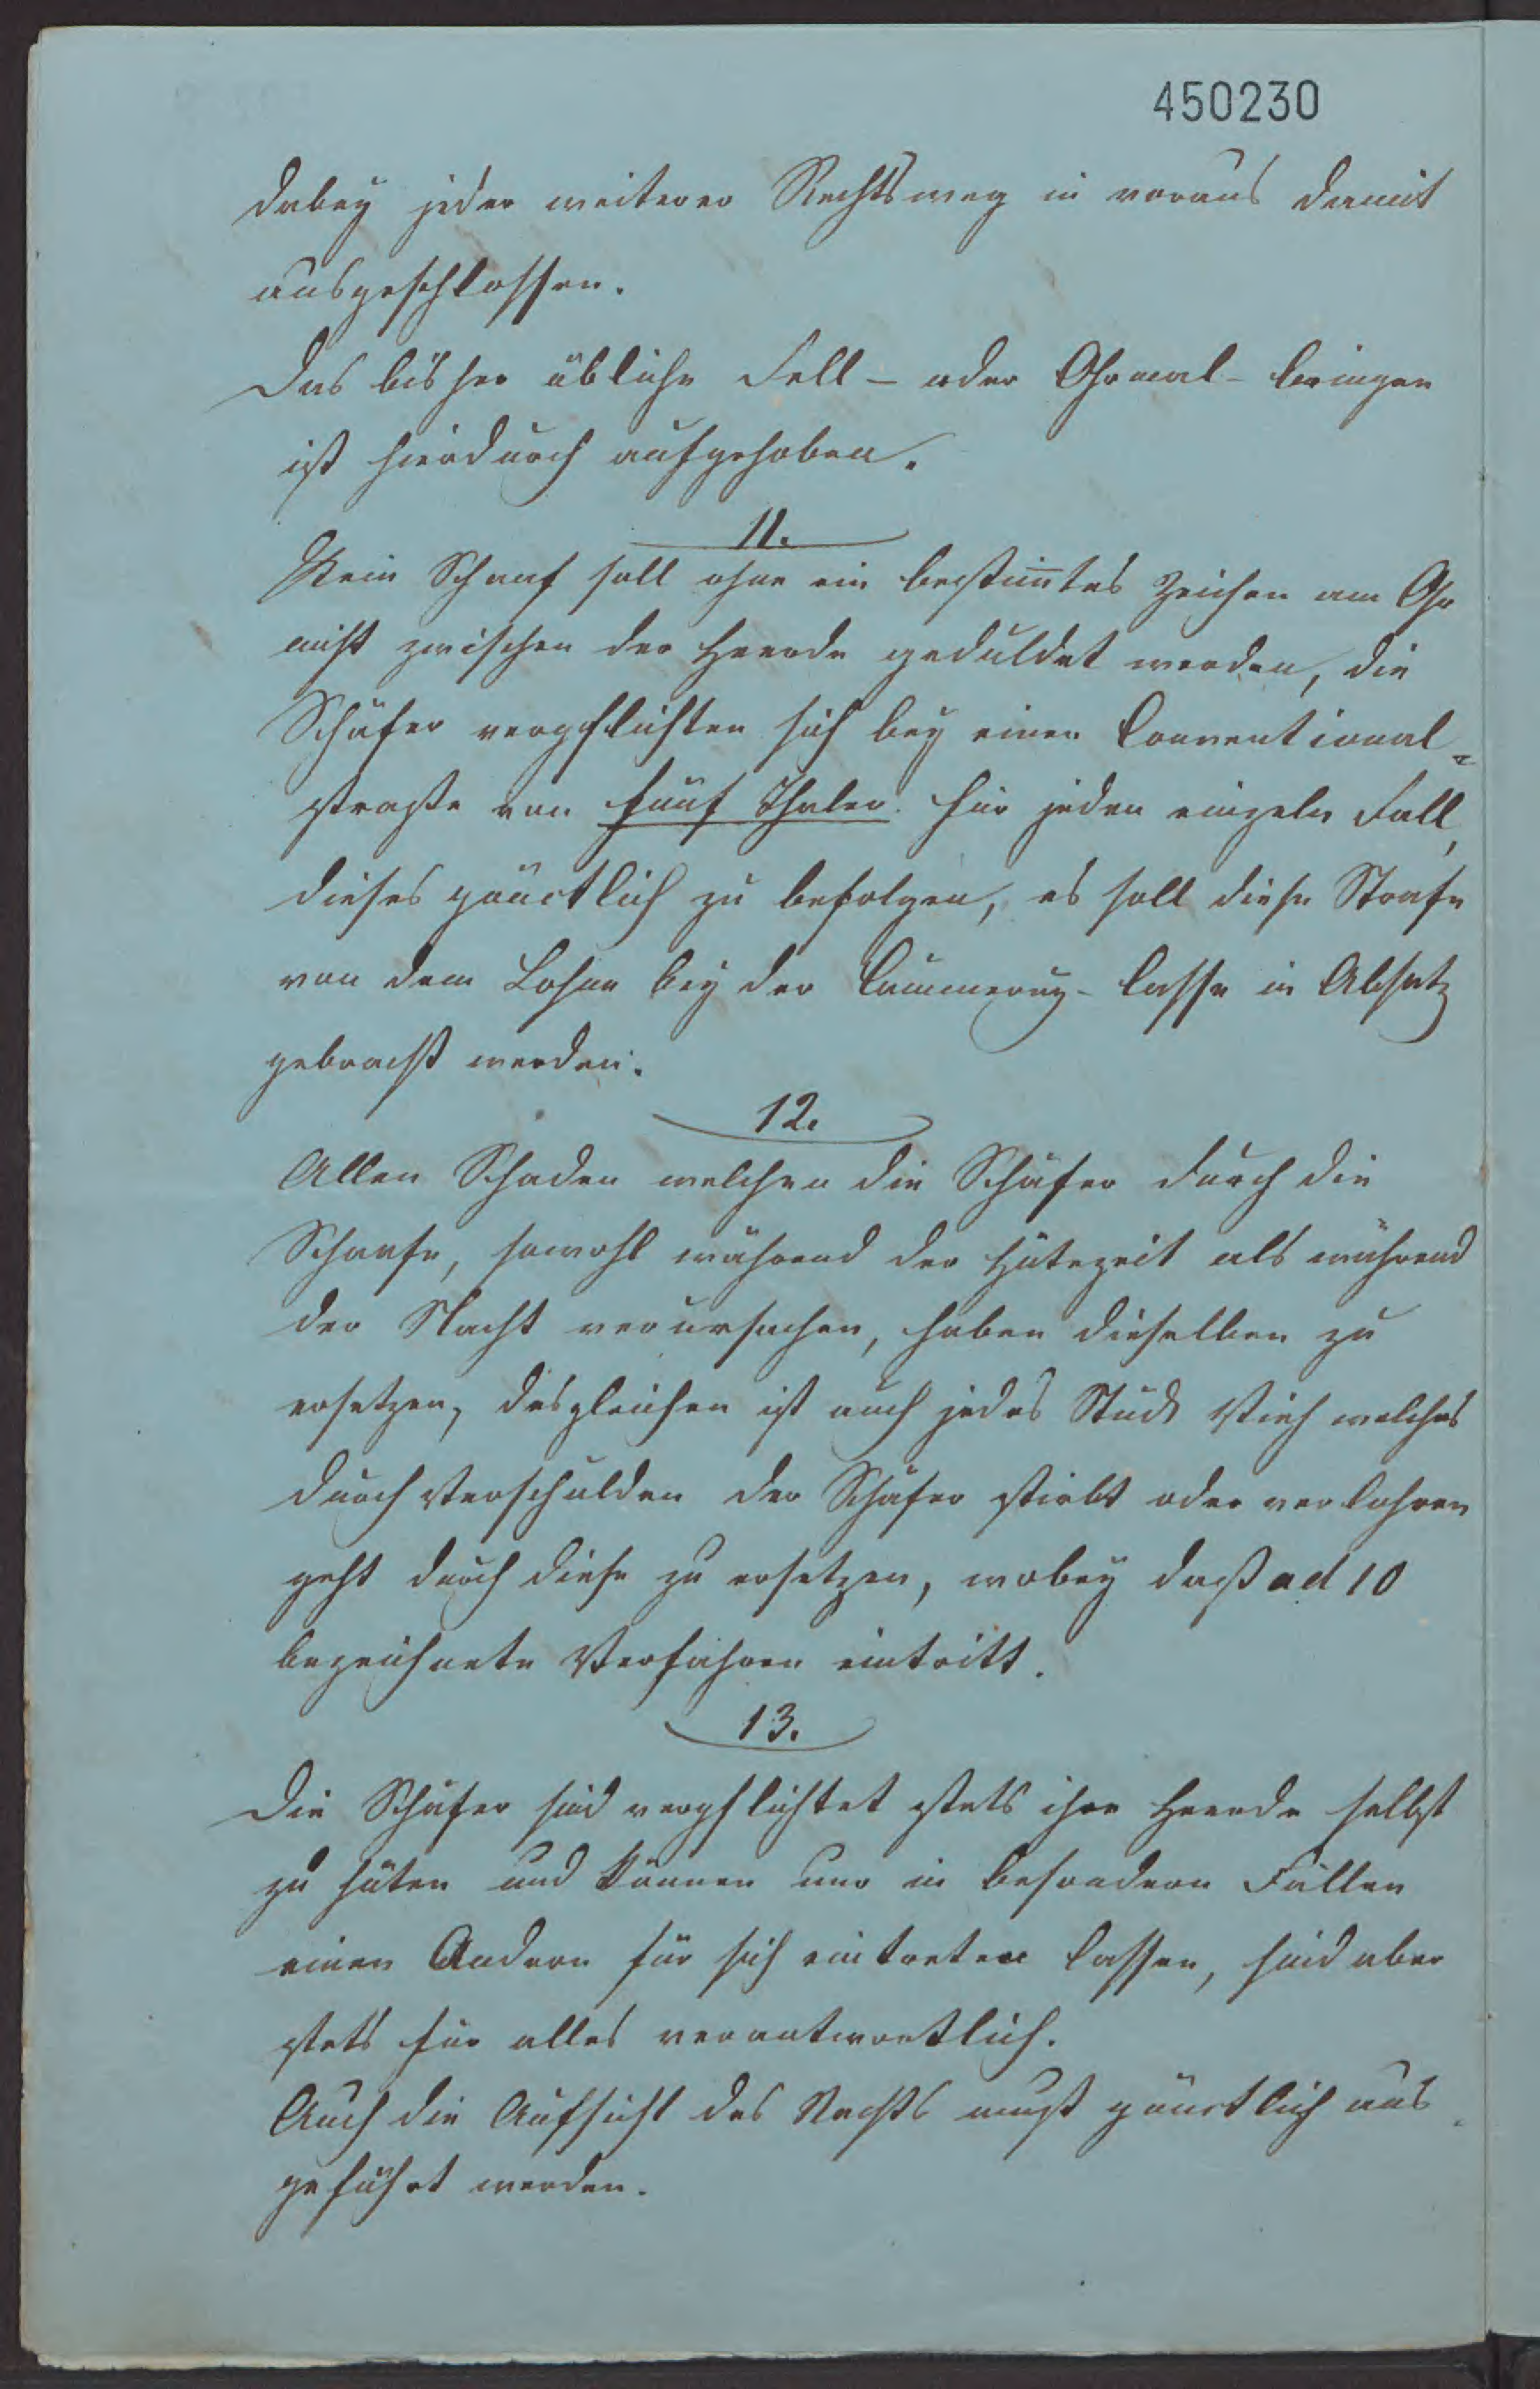 450230
dabey jeder weiterer Rechtsweg in voraus damit
ausgeschlossen.
Das bisher übliche Fell- oder Ohrmal-bringen
ist hierdurch aufgehoben.
11.
Kein Schaaf soll ohne ein bestim̅tes Zeichen am Ohr
nicht zwischen der Heerde geduldet werden, die
Schäfer verpflichten sich bey einer Conventional-
strafe von fünf Thaler für jeden einzeln Fall,
dieses pünctlich zu befolgen, es soll diese Strafe
von dem Lohne bey der Cämmerey-Casse in Absatz
gebracht werden.
12.
Allen Schaden welchen die Schäfer durch die
Schaafe, sowohl während der Hütezeit als während
der Nacht verursachen, haben dieselben zu
ersetzen, desgleichen ist auch jedes Stück Vieh welches
durch Verschulden der Schäfer stirbt oder verlohren
geht durch diese zu ersetzen, wobey daß ad 10
bezeichnete Verfahren eintritt.
13.
Die Schäfer sind verpflichtet stets ihre Heerde selbst
zu hüten und können nur in besondern Fällen
einen Andern für sich eintreten lassen, sind aber
stets für alles verantwortlich.
Auch die Aufsicht des Nachts muß pünctlich aus-
geführt werden.